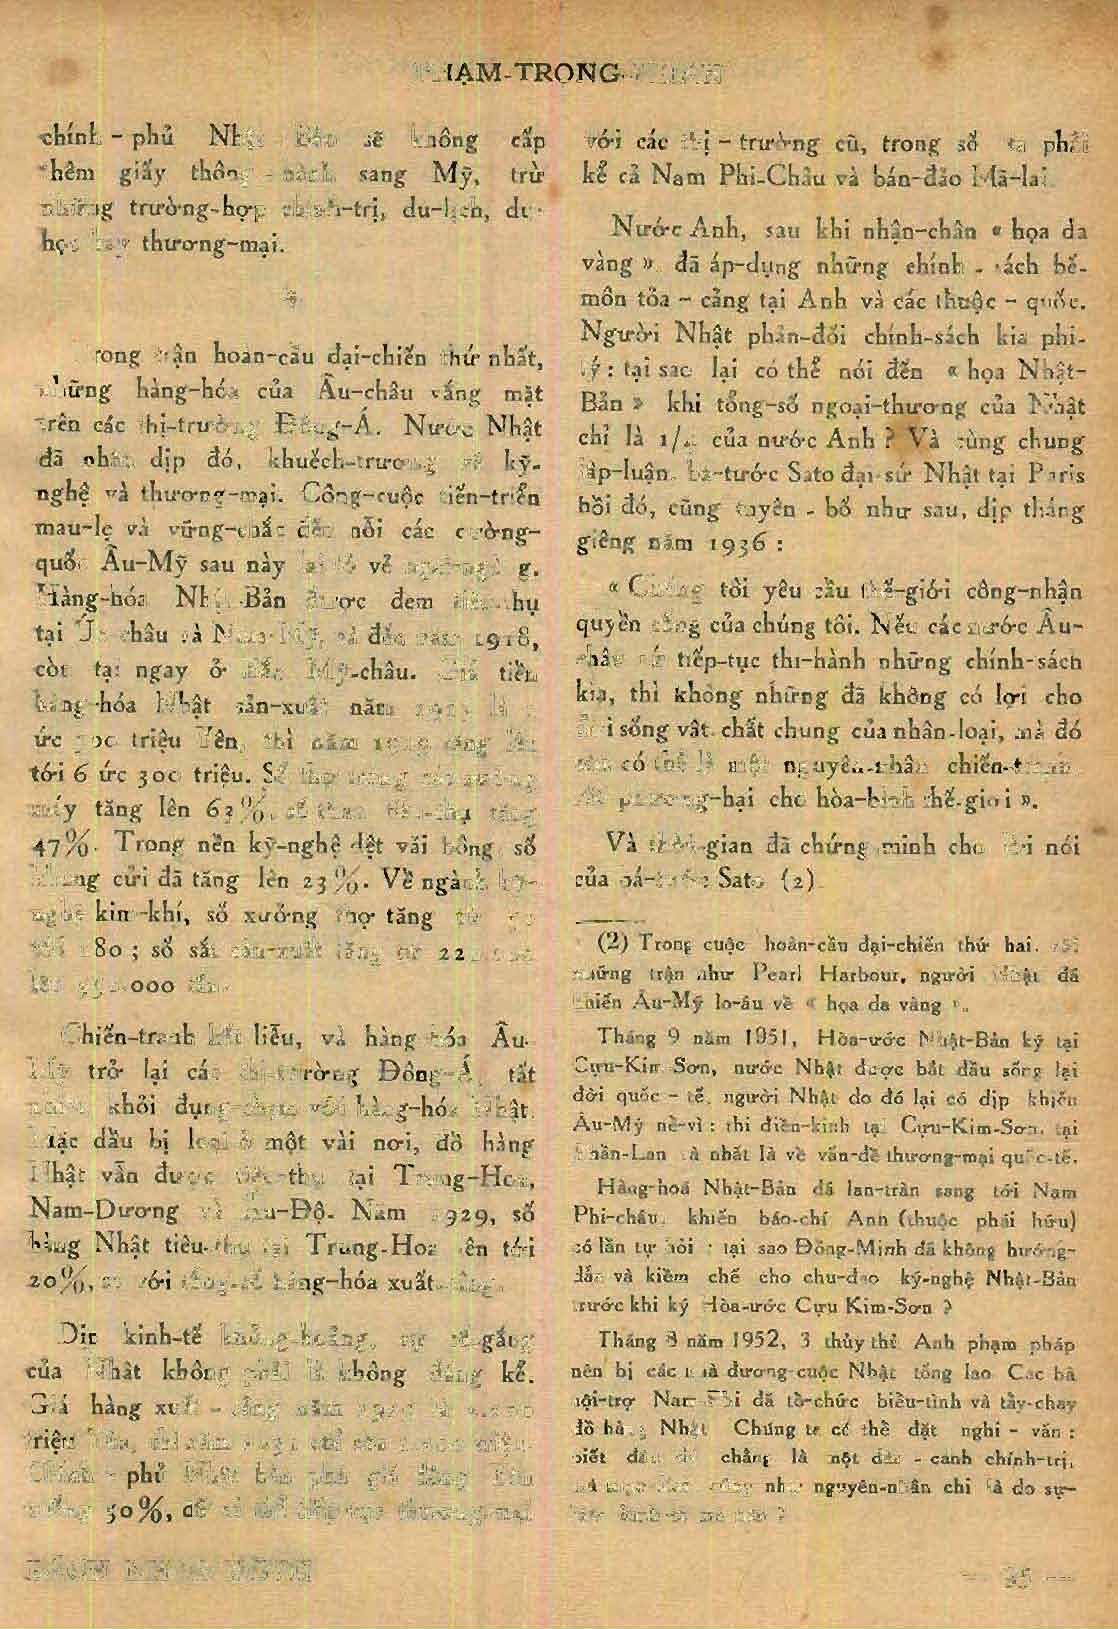 PHẠM-TRỌNG-
chính - phủ Nhật Bản sẽ không cấp
thêm giấy thông - hành sang Mỹ, trừ
những trường-hợp chính-trị, du-lịch, du-
học hay thương-mại.
Trong trận hoàn-cầu đại-chiến thứ nhất,
những hàng-hóa của Âu-châu vắng mặt
trên các thị-trường Đông-Á. Nước Nhật
đã nhân dịp đó, khuếch-trương về kỹ-
nghệ và thương-mại. Công-cuộc tiến-triển
mau-lẹ và vững-chắc đến nỗi các cường-
quốc Âu-Mỹ sau này lại tỏ vẻ
Hàng-hóa Nhật-Bản được đem tiêu-thụ
tại Úc châu và Nam-Mỹ, và đầu năm 1918,
còn tại ngay ở Bắc Mỹ-châu. Giá tiền
hàng-hóa Nhật sản-xuất năm là
ức 300 triệu Yên, thì năm 1919 tăng lên
tới 6 ức 300 triệu. Số thợ trong các xưởng
máy tăng lên 63%, số than tiêu-thụ tăng
47%. Trong nền kỹ-nghệ dệt vải bông, số
khung cửi đã tăng lên 23%. Về ngành kỹ-
nghệ kim-khí, số xưởng thợ tăng từ
tới 280 ; số sắt sản-xuất tăng từ
lên .000 tấn.
Chiến-tranh kết liễu, và hàng hóa Âu-
Mỹ trở lại các thị-trường Đông-Á, tất
nhiên khỏi đụng-chạm với hàng-hóa Nhật.
Mặc dầu bị loại ở một vài nơi, đồ hàng
Nhật vẫn được tiêu-thụ tại Trung-Hoa,
Nam-Dương và Ấn-Độ. Năm 1929, số
hàng Nhật tiêu-thụ tại Trung-Hoa lên tới
20%, so với tổng-số hàng-hóa xuất-cảng.
Dịp kinh-tế khủng-hoảng, sự cố-gắng
của Nhật không phải là không đáng kể.
Giá hàng xuất - cảng năm là
triệu Yên, thì năm chỉ còn triệu.
Chính - phủ Nhật bèn phá giá đồng Yên
xuống 50%, để có thể tiếp-tục thương-mại
với các thị - trường cũ, trong số ta phải
kể cả Nam Phi-Châu và bán-đảo Mã-lai.
Nước Anh, sau khi nhận-chân « họa da
vàng », đã áp-dụng những chính - sách bế-
môn tỏa - cảng tại Anh và các thuộc - quốc.
Người Nhật phản-đối chính-sách kia phi-
lý : tại sao lại có thể nói đến « họa Nhật-
Bản » khi tổng-số ngoại-thương của Nhật
chỉ là 1/4 của nước Anh ? Và cùng chung
lập-luận, bá-tước Sato đại-sứ Nhật tại Paris
hồi đó, cũng tuyên - bố như sau, dịp tháng
giêng năm 1936 :
« Chúng tôi yêu cầu thế-giới công-nhận
quyền sống của chúng tôi. Nếu các nước Âu-
châu cứ tiếp-tục thi-hành những chính-sách
kia, thì không những đã không có lợi cho
đời sống vật chất chung của nhân-loại, mà đó
còn có thể là một nguyên-nhân chiến-tranh
để phương-hại cho hòa-bình thế-giới ».
Và thời-gian đã chứng minh cho lời nói
của bá-tước Sato (2)
(2) Trong cuộc hoàn-cầu đại-chiến thứ hai, với
những trận như Pearl Harbour, người Nhật đã
khiến Âu-Mỹ lo-âu về « họa da vàng ».
Tháng 9 năm 1951, Hòa-ước Nhật-Bản ký tại
Cựu-Kim Sơn, nước Nhật được bắt đầu sống lại
đời quốc - tế, người Nhật do đó lại có dịp khiến
Âu-Mỹ nể-vì : thi điền-kinh tại Cựu-Kim-Sơn, tại
Phần-Lan và nhất là về vấn-đề thương-mại quốc-tế.
Hàng-hoá Nhật-Bản đã lan-tràn sang tới Nam
Phi-châu, khiến báo-chí Anh (thuộc phái hữu)
có lần tự hỏi : tại sao Đồng-Minh đã không hướng-
dẫn và kiềm chế cho chu-đáo kỹ-nghệ Nhật-Bản
trước khi ký Hòa-ước Cựu Kim-Sơn ?
Tháng 8 năm 1952, 3 thủy thủ Anh phạm pháp
nên bị các nhà đương-cuộc Nhật tống lao. Các bà
nội-trợ Nam-Phi đã tổ-chức biểu-tình và tẩy-chay
đồ hàng Nhật. Chúng ta có thể đặt nghi - vấn :
biết đâu đó chẳng là một đấu - tranh chính-trị,
mà như nguyên-nhân chỉ là do sự-
?
— 35 —